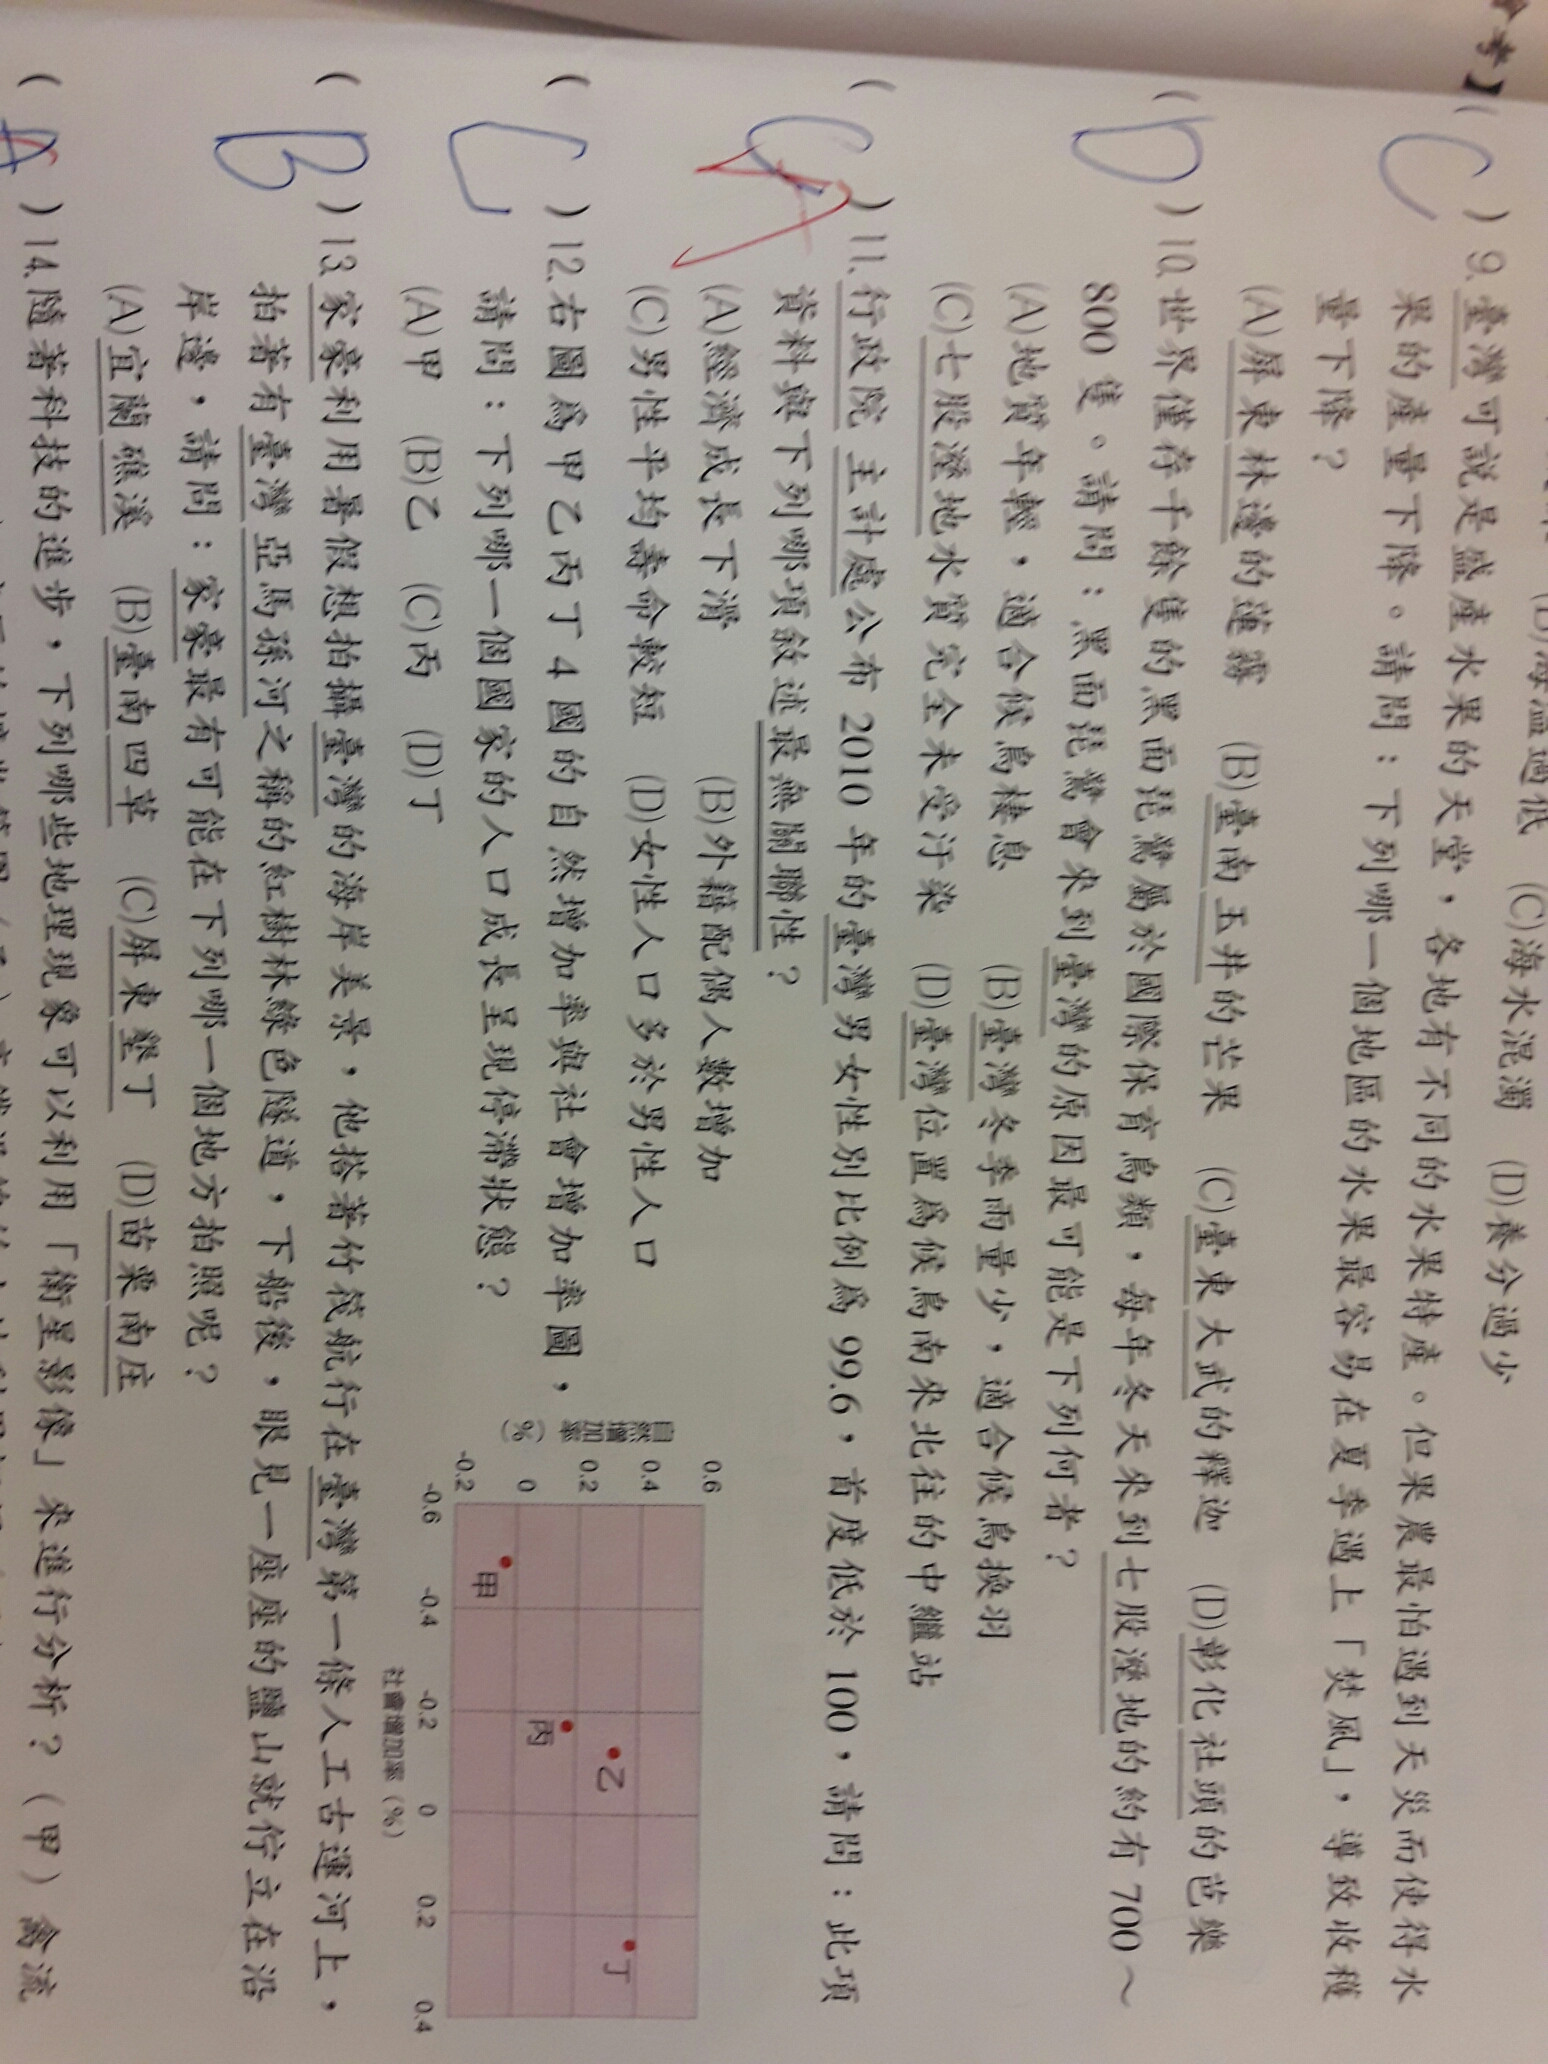 考】
(D)海溫過低 (C)海水混濁 (D)養分過少
( C )9.臺灣可說是盛產水果的天堂，各地有不同的水果特產。但果農最怕遇到天災而使得水
果的產量下降。請問：下列哪一個地區的水果最容易在夏季遇上「焚風」，導致收穫
量下降？
(A)屏東林邊的蓮霧 (B)臺南玉井的芒果 (C)臺東大武的釋迦 (D)彰化社頭的芭樂
( D )10.世界僅存千餘隻的黑面琵鷺屬於國際保育鳥類，每年冬天來到七股溼地的約有 700～
800 隻。請問：黑面琵鷺會來到臺灣的原因最可能是下列何者？
(A)地質年輕，適合候鳥棲息 (B)臺灣冬季雨量少，適合候鳥換羽
(C)七股溼地水質完全未受汙染 (D)臺灣位置為候鳥南來北往的中繼站
( C A )11.行政院主計處公布 2010 年的臺灣男女性別比例為 99.6，首度低於 100，請問：此項
資料與下列哪項敘述最無關聯性？
(A)經濟成長下滑 (B)外籍配偶人數增加
(C)男性平均壽命較短 (D)女性人口多於男性人口
( C )12.右圖為甲乙丙丁 4 國的自然增加率與社會增加率圖，
請問：下列哪一個國家的人口成長呈現停滯狀態？
(A)甲 (B)乙 (C)丙 (D)丁
自然增加率（%）
0.6
0.4
0.2
0
-0.2
-0.6 -0.4 -0.2 0 0.2 0.4
社會增加率（%）
甲
丙
乙
丁
( B )13.家豪利用暑假想拍攝臺灣的海岸美景，他搭著竹筏航行在臺灣第一條人工古運河上，
拍著有臺灣亞馬孫河之稱的紅樹林綠色隧道，下船後，眼見一座座的鹽山就佇立在沿
岸邊，請問：家豪最有可能在下列哪一個地方拍照呢？
(A)宜蘭礁溪 (B)臺南四草 (C)屏東墾丁 (D)苗栗南庄
( A )14.隨著科技的進步，下列哪些地理現象可以利用「衛星影像」來進行分析？（甲）禽流